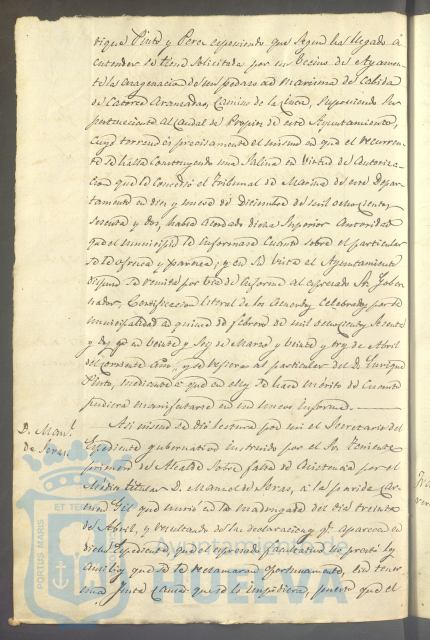 rique Pinto y Perez exponiendo que segun ha llegado á
entender se tiene solicitada por un Vecino de Ayamon-
te la enagenacion de un pedazo de Marisma de Cabida
de Catorce aranzadas, Camino de la suponiendo su
pertenencia al Caudal de Propios de este Ayuntamiento,
cuyo terreno es precisamente el mismo en que el recurren-
te se halla construyendo una Salina en virtud de autoriza-
cion que le concedió el Tribunal de Marina de este Depar-
tamento en diez y nueve de Diciembre de mil ochocientos
sesenta y dos, había acordado dicha Superior Autoridad
que el municipio le informara cuanto sobre el particular
se le ofrezca y parezca; y en su vista el Ayuntamiento
dispuso se remita por via de informe al espresado Sr. Gober-
nador, Certificacion literal de los acuerdos celebrados por la
municipalidad á quince de febrero de mil ochocientos sesenta
y dos, y en veinte y seis de Marzo y veinte y tres de Abril
del corriente año, y se refieren al particular del D. Enrique
Pinto, mediante á que en ellos se hace mérito de cuanto
pudiera manifestarse en un nuevo informe.
D. Man.l
de Soras.
Asi mismo se dió lectura por mi el Secretario del
Espediente gubernativo instruido por el Sr. Teniente
primero de Alcalde sobre falta de asistencia por el
Médico titular D. Manuel de Soras, á la parida Car-
men Gil que murió en la madrugada del dia treinta
de Abril, y resultando de las declaraciones q.e aparecen en
dicho Espediente, que el espresado facultativo no prestó los
ausilios que se le reclamaron oportunamente, sin tener
una justa causa que se lo impidiera, puesto que el
PORTUS MARIS
ET TER
Ayuntamiento de
HUELVA